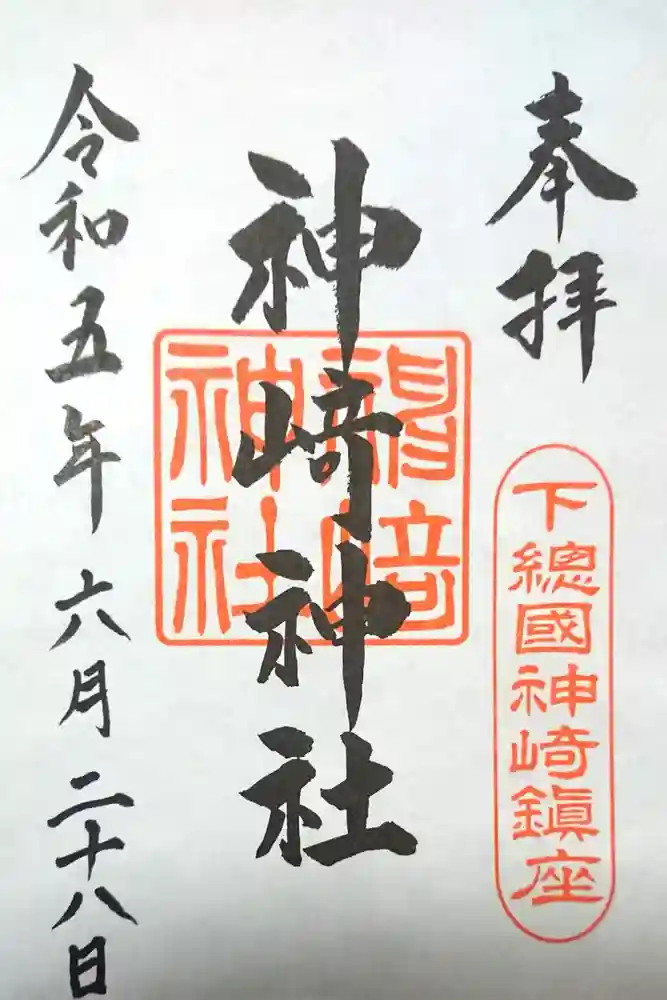 奉拝
下總國神崎鎮座
神崎神社
神崎神社
令和五年六月二十八日